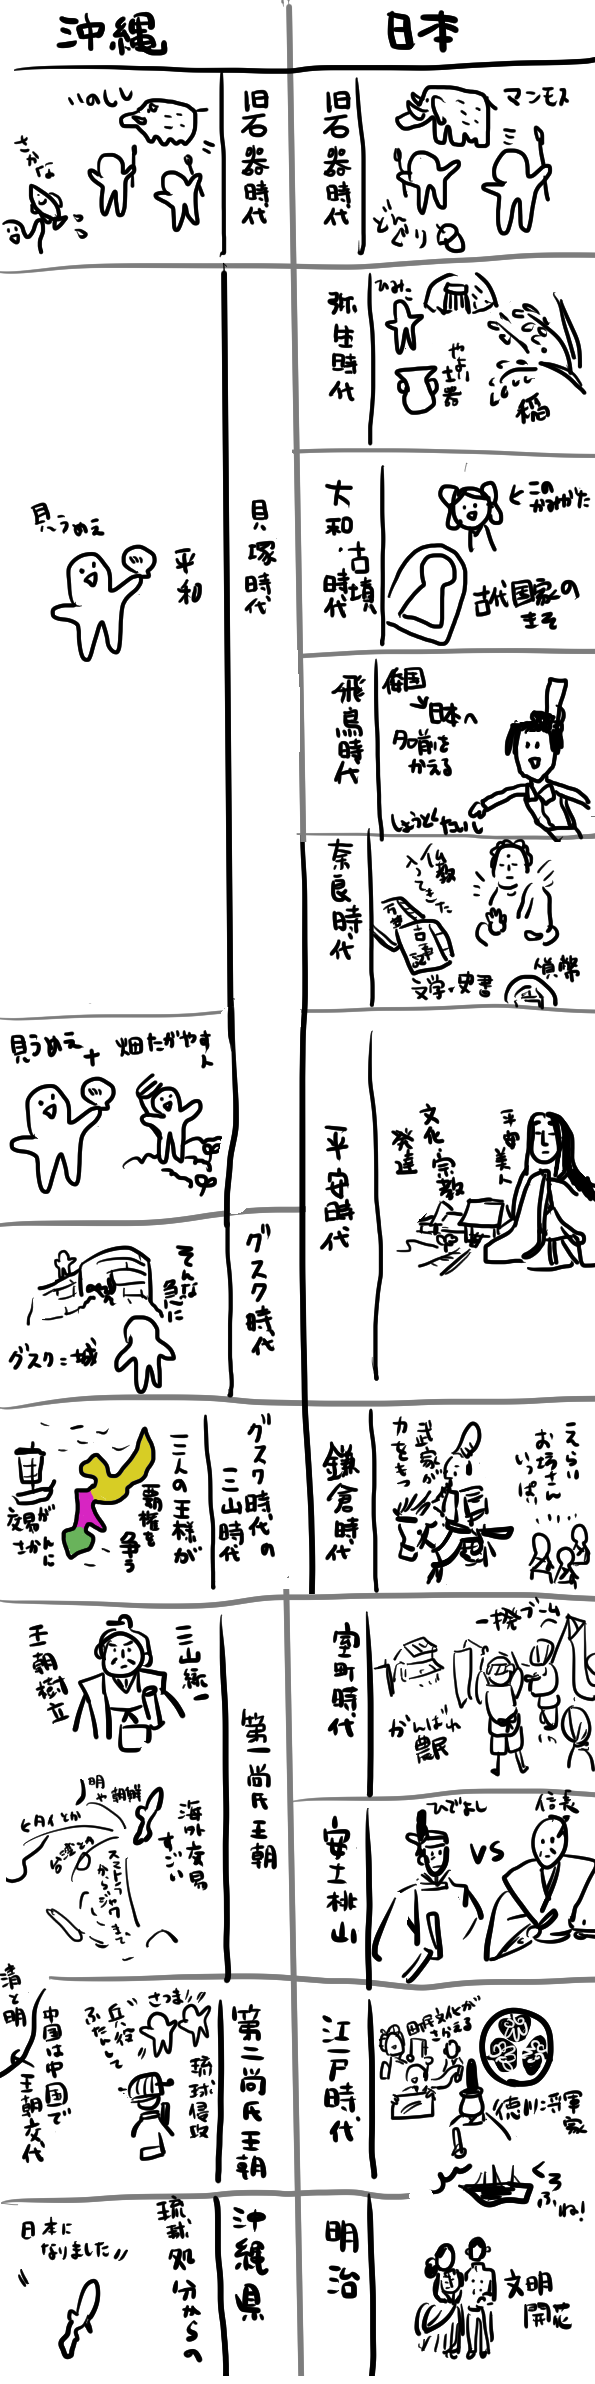 沖縄
日本
いのしし
さかな
旧石器時代
旧石器時代
マンモス
どんぐり
弥生時代
ひみこ
やよい土器
稲
貝うめえ
平和
貝塚時代
大和・古墳時代
←この
かみがた
古代国家の
きそ
飛鳥時代
倭国
→日本へ
名前を
かえる
しょうとくたいし
奈良時代
仏教
入ってきた
万葉
古事記
文学・史書
貨幣
貝うめえ
+
畑たがやす人
平安時代
文化・宗教
発達
平安美人
そんな
急に
グスク=城
グスク時代
三人の王様が
覇権を
争う
交易が
さかんに
グスク時代の
三山時代
鎌倉時代
武家が
力をもつ
えらい
お坊さん
いっぱい
三山統一
王朝樹立
明や朝鮮
タイとか
台湾との
スマトラ
からジャワまで
海外交易
すごい
第一尚氏王朝
室町時代
一揆ブーム
がんばれ
農民
安土桃山
ひでよし
VS
信長
清と明
中国は中国で
王朝交代
さつま!!
兵役
ふたんして
琉球侵攻
第二尚氏王朝
江戸時代
町民文化が
さかえる
徳川将軍家
くろふね!
日本に
なりました!!
琉球処分からの
沖縄県
明治
文明
開花